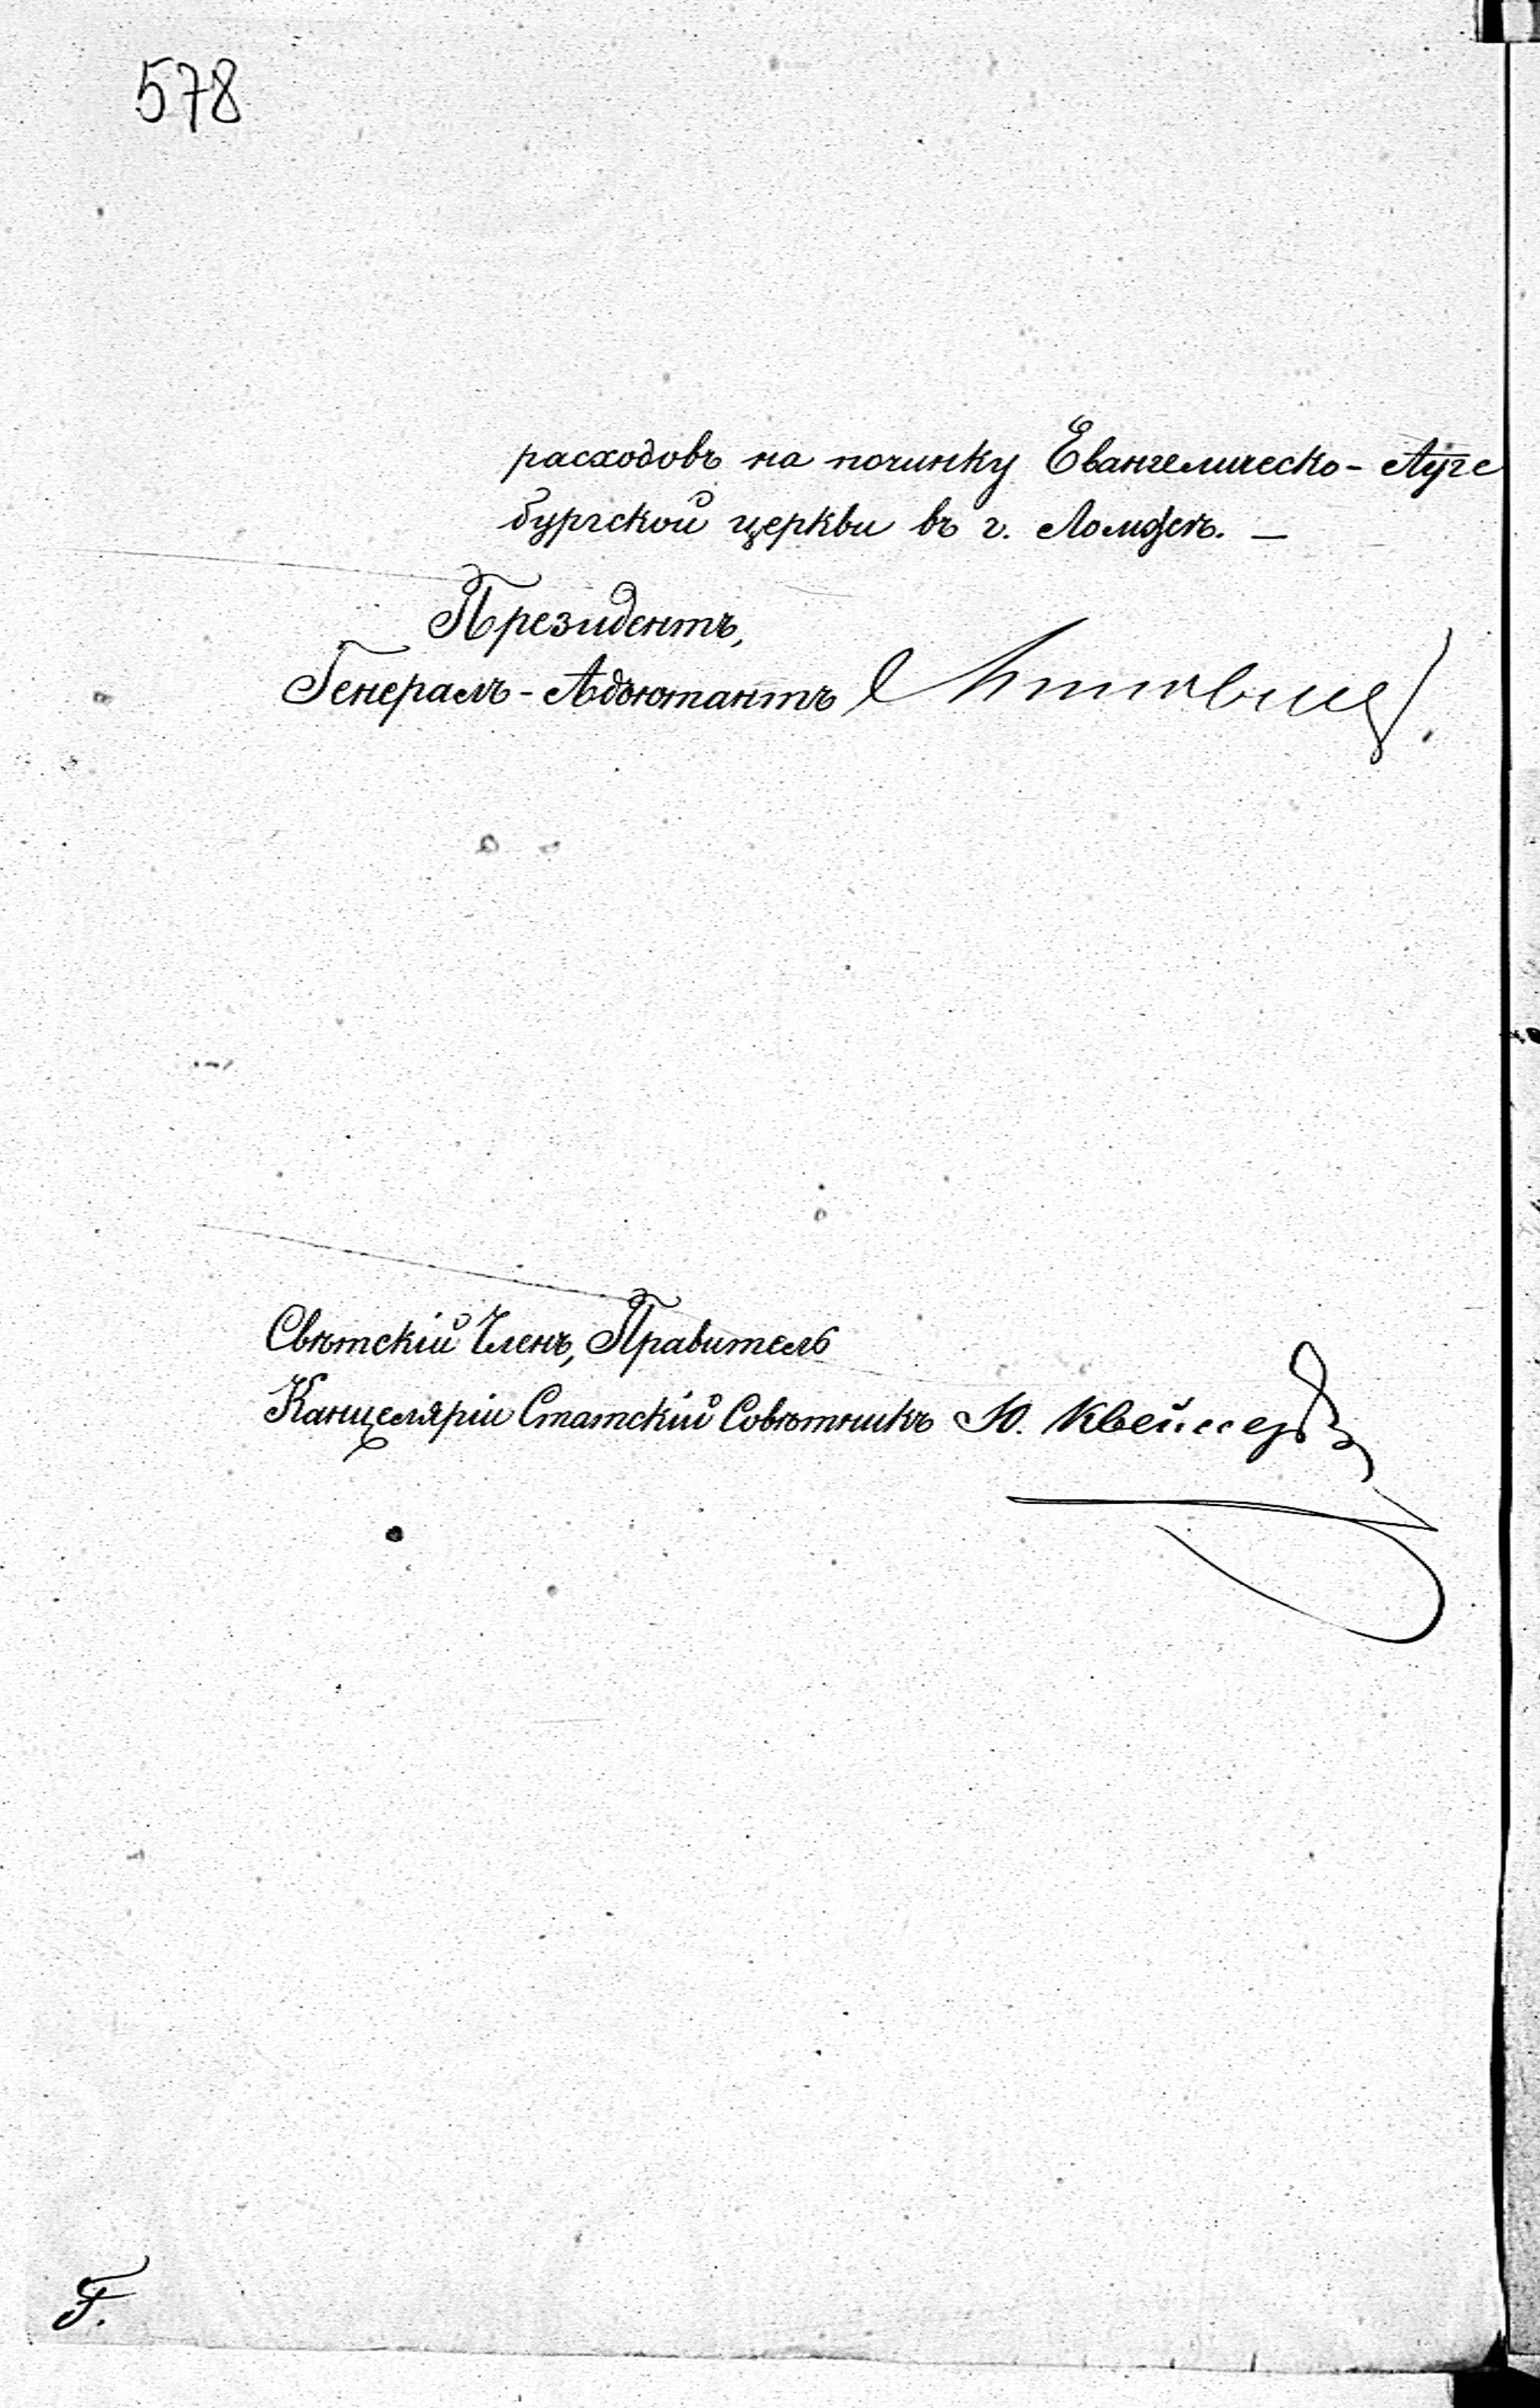 578
расходовъ на починку Евангелическо-Аугс
бургской церкви въ г. Ломжѣ. —
Президентъ,
Генералъ-Адъютантъ
Свѣтскій Членъ, Правитель
Канцеляріи Статскій Совѣтникъ Ю.
F.